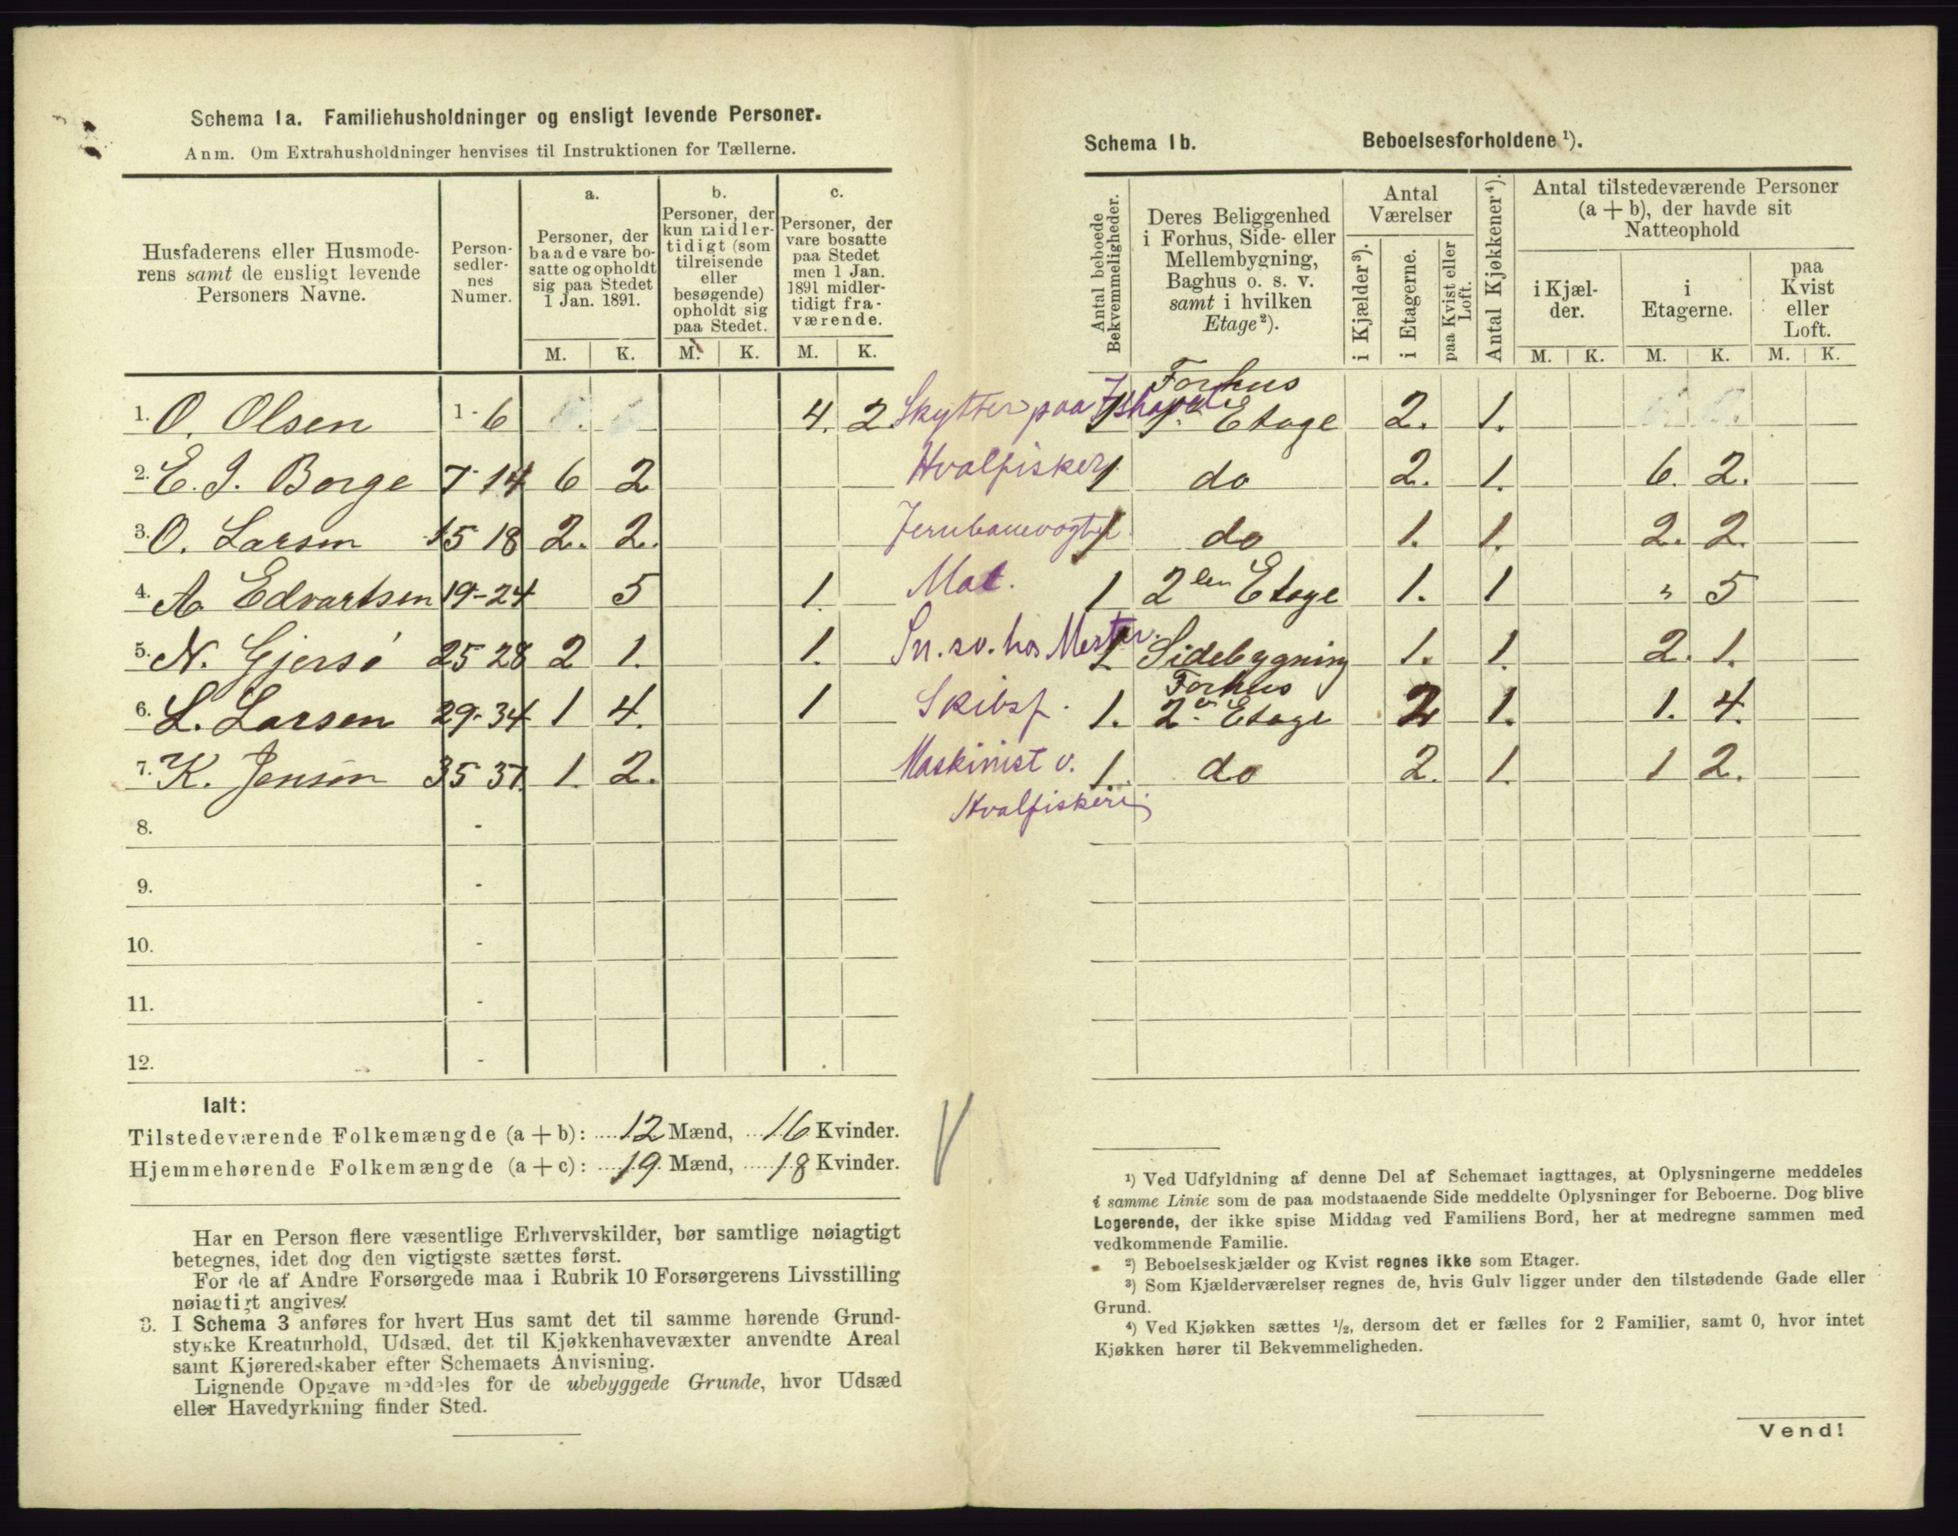 Schema 1a. Familiehusholdninger og ensligt levende Personer.
Anm. Om Extrahusholdninger henvises til Instruktionen for Tællerne.
Husfaderens eller Husmoderens samt de ensligt levende Personers Navne.
Personsedlernes Numer.
a.
Personer, der baade vare bosatte og opholdt sig paa Stedet 1 Jan. 1891.
b.
Personer, der kun midlertidigt (som tilreisende eller besøgende) opholdt sig paa Stedet.
c.
Personer, der vare bosatte paa Stedet men 1 Jan. 1891 midlertidigt fraværende.
M. K. M. K. M. K.
1. O. Olsen 1-6 4. 2 Skytter paa Ishavet
2. E. J. Borge 7-14 6 2 Hvalfisker
3. O. Larsen 15 18 2. 2. Jernbanevogter
4. A. Edvartsen 19-24 5 1. Mat.
5. N. Gjersø 25 28 2 1. 1. Sn. sv. hos Mester.
6. L. Larsen 29-34 1 4. 1 Skibsf.
7. K. Jensen 35 37. 1. 2. Maskinist v. Hvalfiskeri
8. -
9. -
10. -
11. -
12. -
Ialt:
Tilstedeværende Folkemængde (a + b): 12 Mænd, 16 Kvinder.
Hjemmehørende Folkemængde (a + c): 19 Mænd, 18 Kvinder.
Har en Person flere væsentlige Erhvervskilder, bør samtlige nøiagtigt
betegnes, idet dog den vigtigste sættes først.
For de af Andre Forsørgede maa i Rubrik 10 Forsørgerens Livsstilling
nøiagtigt angives.
3. I Schema 3 anføres for hvert Hus samt det til samme hørende Grund-
stykke Kreaturhold, Udsæd, det til Kjøkkenhavevæxter anvendte Areal
samt Kjøreredskaber efter Schemaets Anvisning.
Lignende Opgave meddeles for de ubebyggede Grunde, hvor Udsæd
eller Havedyrkning finder Sted.
Schema 1b. Beboelsesforholdene ¹).
Antal beboede Bekvemmeligheder.
Deres Beliggenhed i Forhus, Side- eller Mellembygning, Baghus o. s. v. samt i hvilken Etage ²).
Antal Værelser
i Kjælder ³).
i Etagerne.
paa Kvist eller Loft.
Antal Kjøkkener ⁴).
Antal tilstedeværende Personer (a + b), der havde sit Natteophold
i Kjælder.
i Etagerne.
paa Kvist eller Loft.
M. K. M. K. M. K.
1 Forhus 1. Etage 2. 1.
1 do 2. 1. 6. 2.
1 do 1. 1. 2. 2.
1 2den Etage 1. 1 " 5
1 Sidebygning 1. 1. 2. 1.
1. Forhus 2. Etage 2 1. 1. 4.
1. do 2. 1. 1 2.
¹) Ved Udfyldning af denne Del af Schemaet iagttages, at Oplysningerne meddeles
i samme Linie som de paa modstaaende Side meddelte Oplysninger for Beboerne. Dog blive
Logerende, der ikke spise Middag ved Familiens Bord, her at medregne sammen med
vedkommende Familie.
²) Beboelseskjælder og Kvist regnes ikke som Etager.
³) Som Kjælderværelser regnes de, hvis Gulv ligger under den tilstødende Gade eller
Grund.
⁴) Ved Kjøkken sættes ½, dersom det er fælles for 2 Familier, samt 0, hvor intet
Kjøkken hører til Bekvemmeligheden.
Vend!